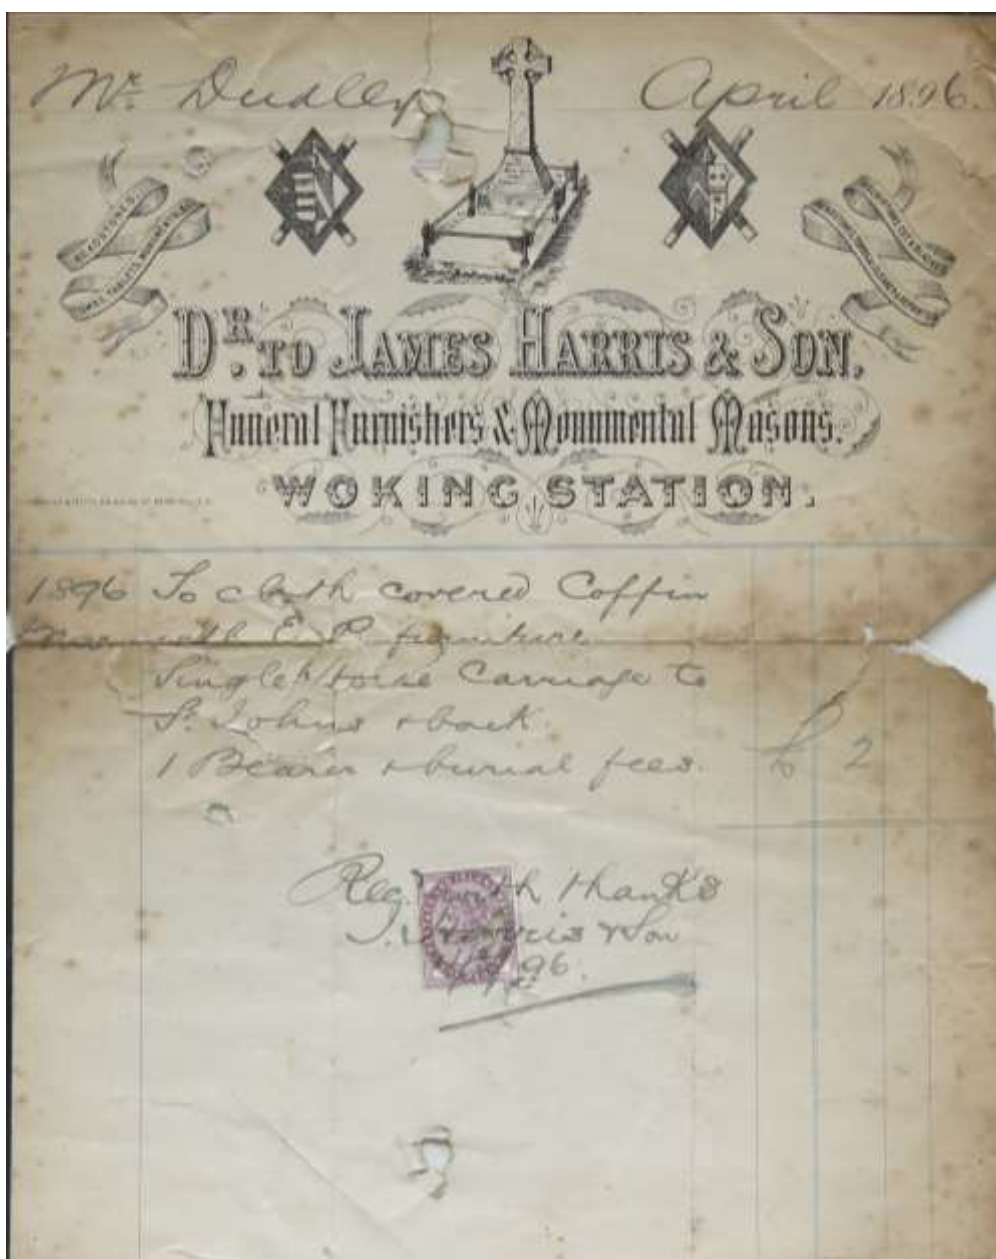 Mr. Dudley April 1896.
HEADSTONES,
TOMBS, TABLETS, MONUMENTS &c
DR. TO JAMES HARRIS & SON.
Funeral Furnishers & Monumental Masons.
WOKING STATION.
1896 To cloth covered Coffin
with E. P. furniture
Single Horse Carriage to
St. Johns & back.
1 Bearer & burial fees. £ 2
Recd with thanks
J. Harris & Son
96.